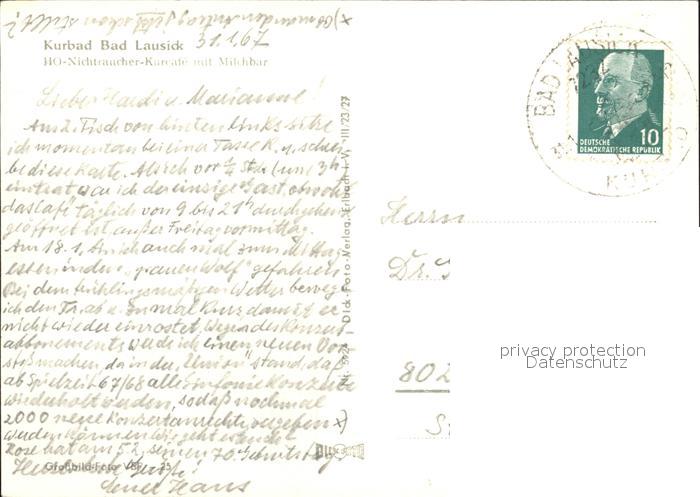 31.1.67
Kurbad Bad Lausick
HO-Nichtraucher-Kurcafé mit Milchbar
Lieber Hardi u. Marianne!
Am 2. Tisch von hinten links sitze
ich momentan bei einer Tasse K. u. schrei
be diese Karte. Als ich vor ¼ Std. (um 13h
eintrat war ich der einzige Gast obwohl
das Café täglich von 9 bis 21h durchgehend
geöffnet ist außer Freitagvormittag.
Am 18.1. bin ich auch mal zum Mittag
essen in den „grauen Wolf" gefahren
Bei dem frühlingsmäßigen Wetter beweg
ich den Tr. ab u. zu mal kurz damit er
nicht wieder einrostet. Wegen des Konzert
abonnements werde ich einen neuen Vor
stoß machen, da in der „Union" stand, daß
ab Spielzeit 67/68 alle Sinfonie Konzerte
wiederholt werden, sodaß nochmal
2000 neue Konzertanrechte ausgeben x)
werden können. Wie geht es euch
Rose hat am 5.2. seinen 70. Geburtstag
Herzliche Grüße!
Euer Hans
Großbild-Foto
Nr. 5624 Dick-Foto-Verlag, Erlbach i. V. III/23/27
BAD LAUSICK
DEUTSCHE
DEMOKRATISCHE REPUBLIK
10
Herrn
Dr.
802
privacy protection
Datenschutz